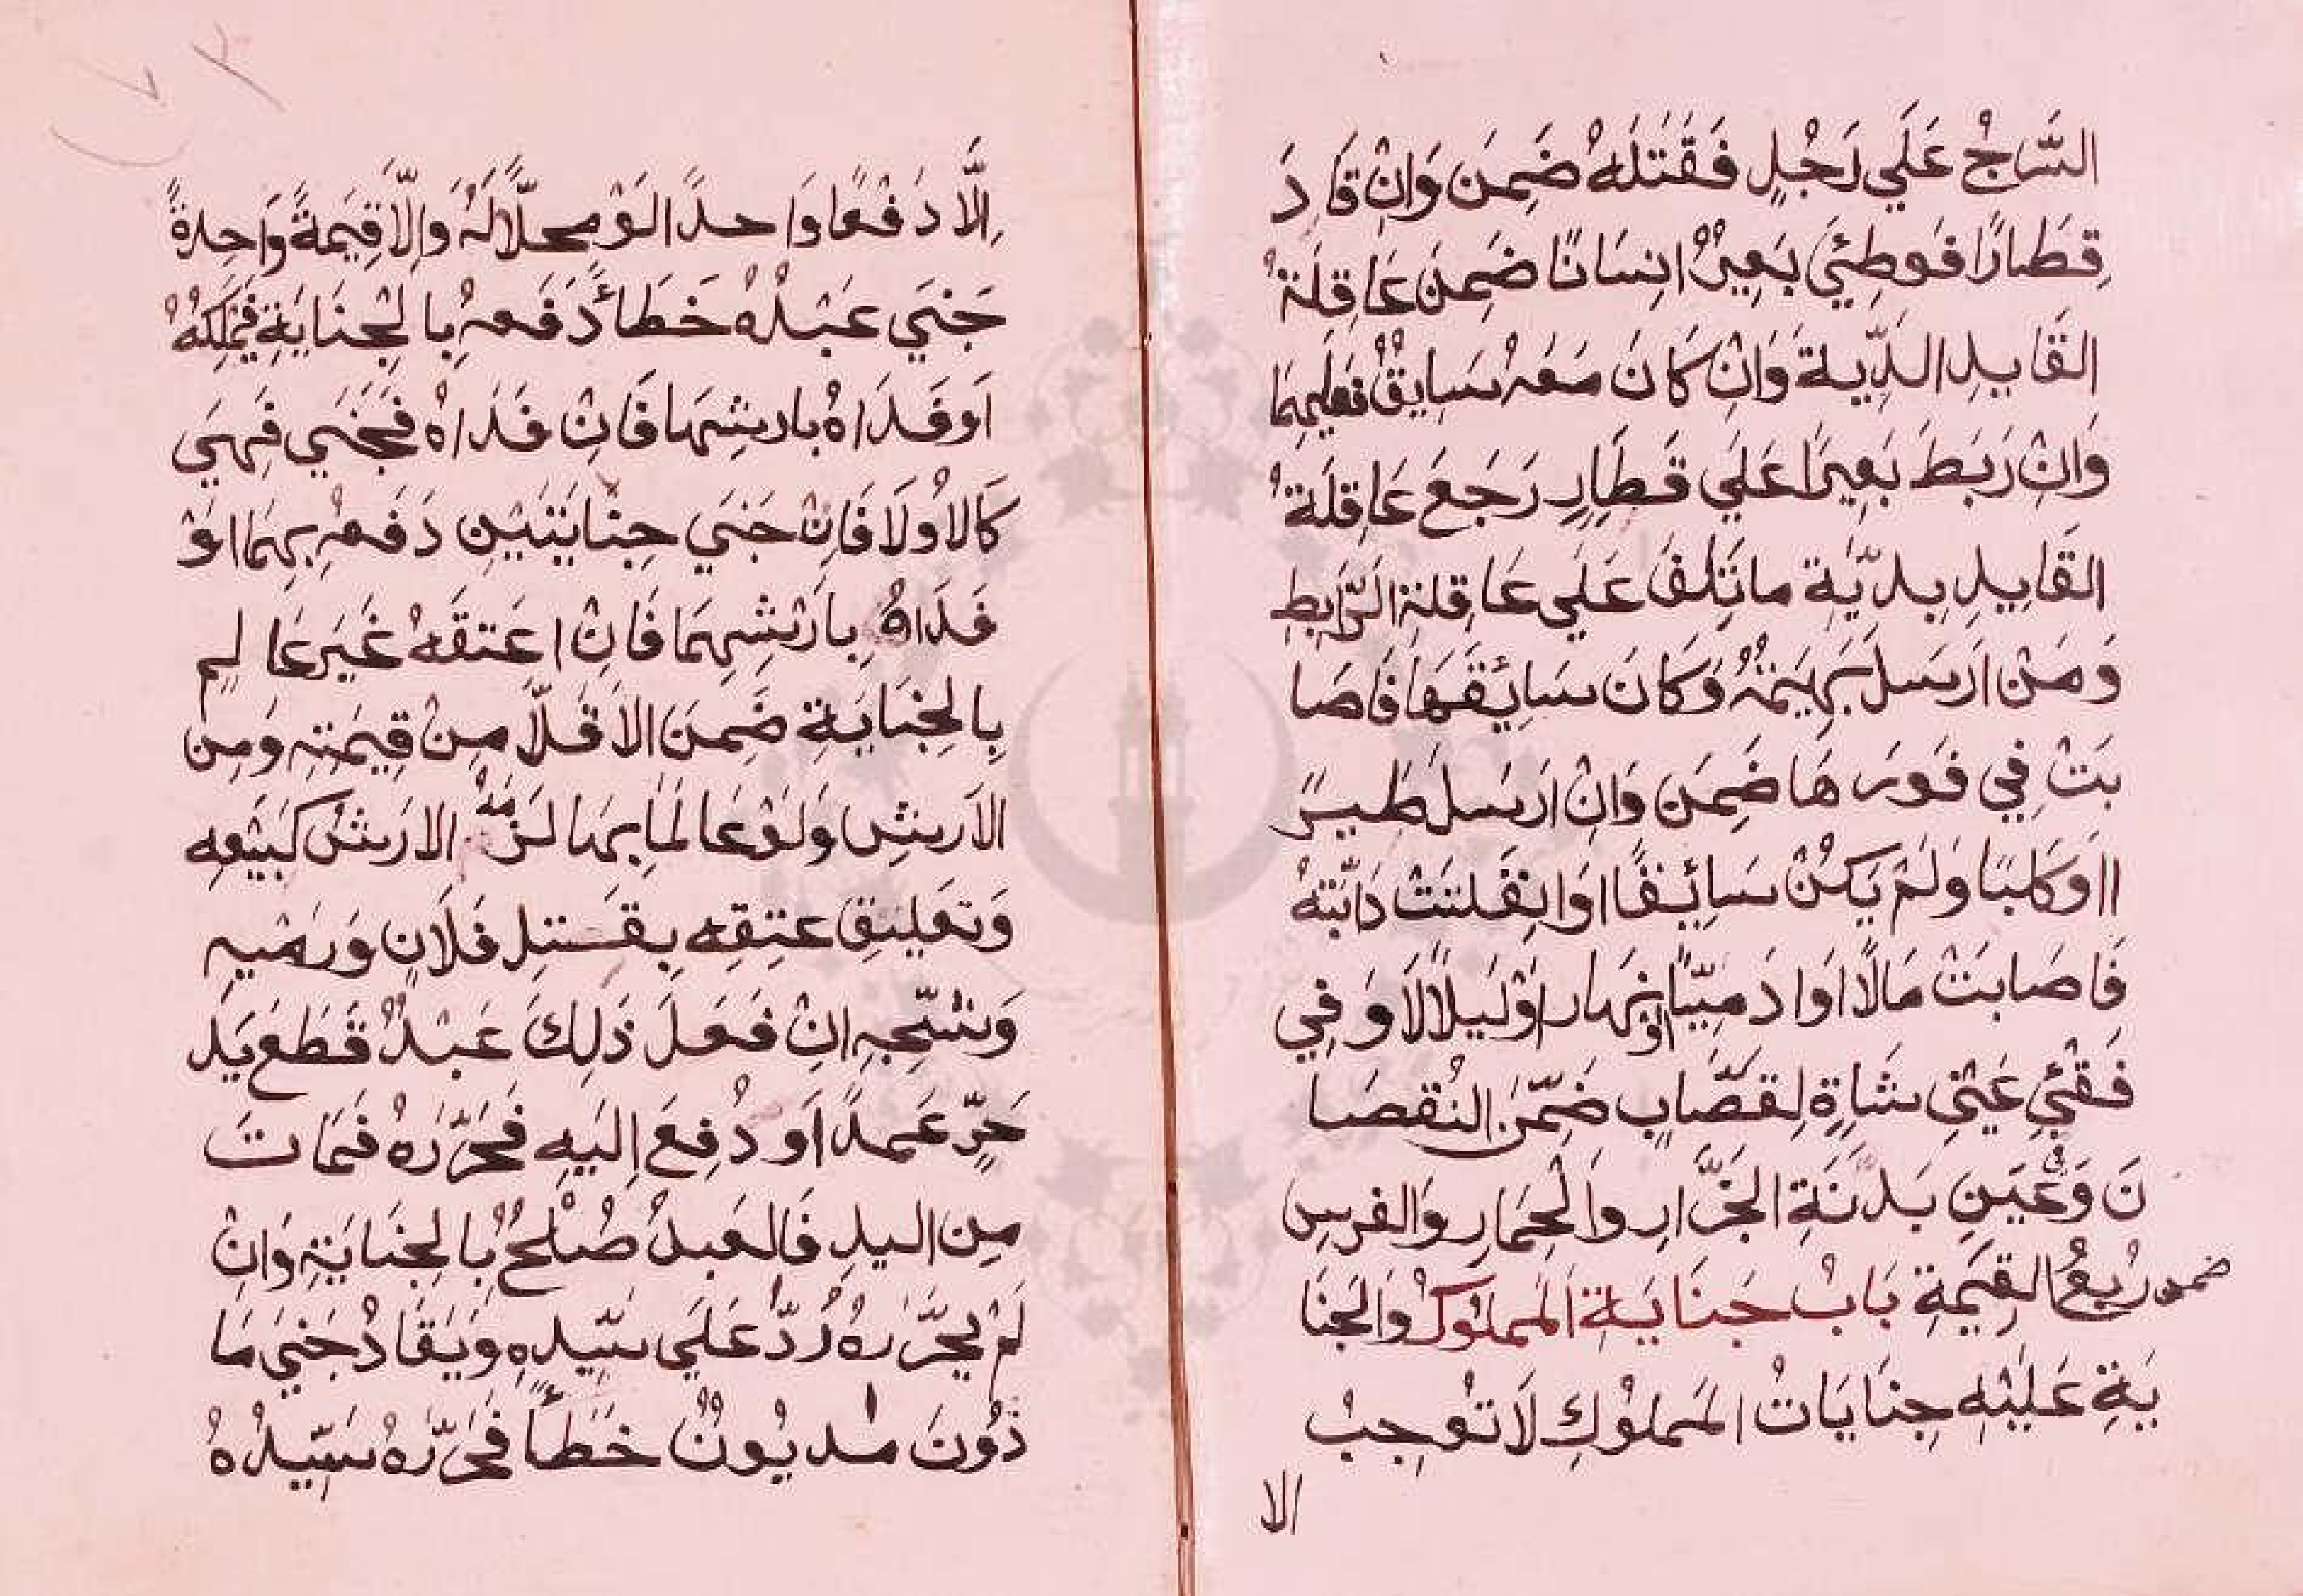 السَّرْجُ عَلَي رَجُلٍ فَقَتَلَهُ ضَمِنَ وَاِنْ قَادَ
قِطَارًا فَوَطِئَ بَعِيْرٌ اِنسَانًا ضَمِنَ عَاقِلَةُ
القَايِدِ الدِّيةَ وَاِنْ كَانَ مَعَهُ سَايِقٌ فَعَلَيهِمَا
وَاِنْ رَبَطَ بَعِيرًا عَلَي قَطَارٍ رَجَعَ عَاقِلَةُ
القَايِدِ بِدِيَّةِ مَا تَلِفَ عَلَي عَاقِلَةِ الرَّابِطِ
وَمَنْ اَرسَلَ بَهِيَمَةً وَكَانَ سَائِقَهَا فَاصَا
بَتْ فِي فَورِهَا ضَمِنَ وَاِنْ اَرسَلَ طَيرً
ااوَكَلبًا وَلَمْ يَكُنْ سَائِقًا اوَانفَلتَتْ دَابَّتهُ
فَاصَابَتْ مَالًا اوَادَمِيّاً نَهَارا اوْلَيلاً لَا وَفِي
او
فَقْئِ عَيْنِ شَاةِ لِقَصَّابٍ ضَمِّنَ النُقصَا
نَ وَفي عَينِ بَدَنَةِ الجَزَّارِ وَالْحِمَارِ وَالفرسِ
ضمن رُبعُ القِيَمَةِ بَابُ جَنَايَةِ المَملُوكْ وَالجَنَا
يَةِ عَلَيْهِ جِنَايَاتُ المَملُوكِ لَا تُوجِبُ
الا
اِلَّا دَفْعًا وَاحدًا لَوْ محلّاً لَهُ وَاِلَّا قِيَمَةً وَاحِدةً
جَنَي عَبْدُهُ خَطَائً دَفَعهُ بِالْجِنَايَةِ فَيَملِكهُ
اَو فَدَاهُ بارشِهَا فَاِنْ فَدَاهُ فَجَنَي فَهِيَ
كَالاُولَا فَاِنْ جَنَي جِنَايَتَيْنِ دَفَعهُ بِهِمَا اوْ
فَدَاهُ بِارْشِهِمَا فَاِنْ اعتَقَهُ غَيرَ عَالِمٍ
بِالجِنَايَةِ ضَمِنَ الاَقَلّ مِنْ قِيمَتِهِ وَمِن
الاَرشِ وَلَوْ عَالمًا بِهَا لَزمهُ الاَرشُ كَبَيْعِهِ
وَتعَلِيقِ عتِقِه بِقَتلِ فَلَانٍ وَرَميِهِ
وَشَجِّهِ اِنْ فَعَلَ ذَلِكَ عَبْدٌ قَطَعَ يَدَ
حَرٍّ عَمدًا اَو دُفِعَ اِلَيهِ فَحَرَّرَهُ فَمَاتَ
مِن اليدِ فَالعَبدُ صُلحٌ بالجِنَايَةِ وَاِنْ
لَمْ يحَرِّرهُ رُدَّ عَلَي سَيّدِهِ وَيَقَادُ جَنَي مَا
ذُونَ مديُونٌ خَطَأً فَحَرَّرهُ سَيّدُهُ